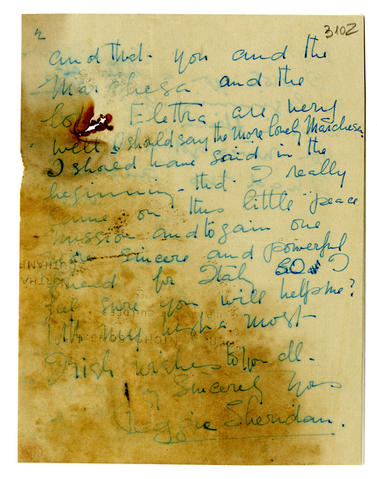 2
3102
and that you and the
Marchesa and the
Elettra are very
well I should say the more lovely Marchesa
I should have said in the
beginning that I really
came on this little peace
mission and to gain one
more sincere and powerful
friend for Italy so I
feel sure you will help me?
With my most
Irish wishes to you all -
Sincerely Yours
Sheridan.